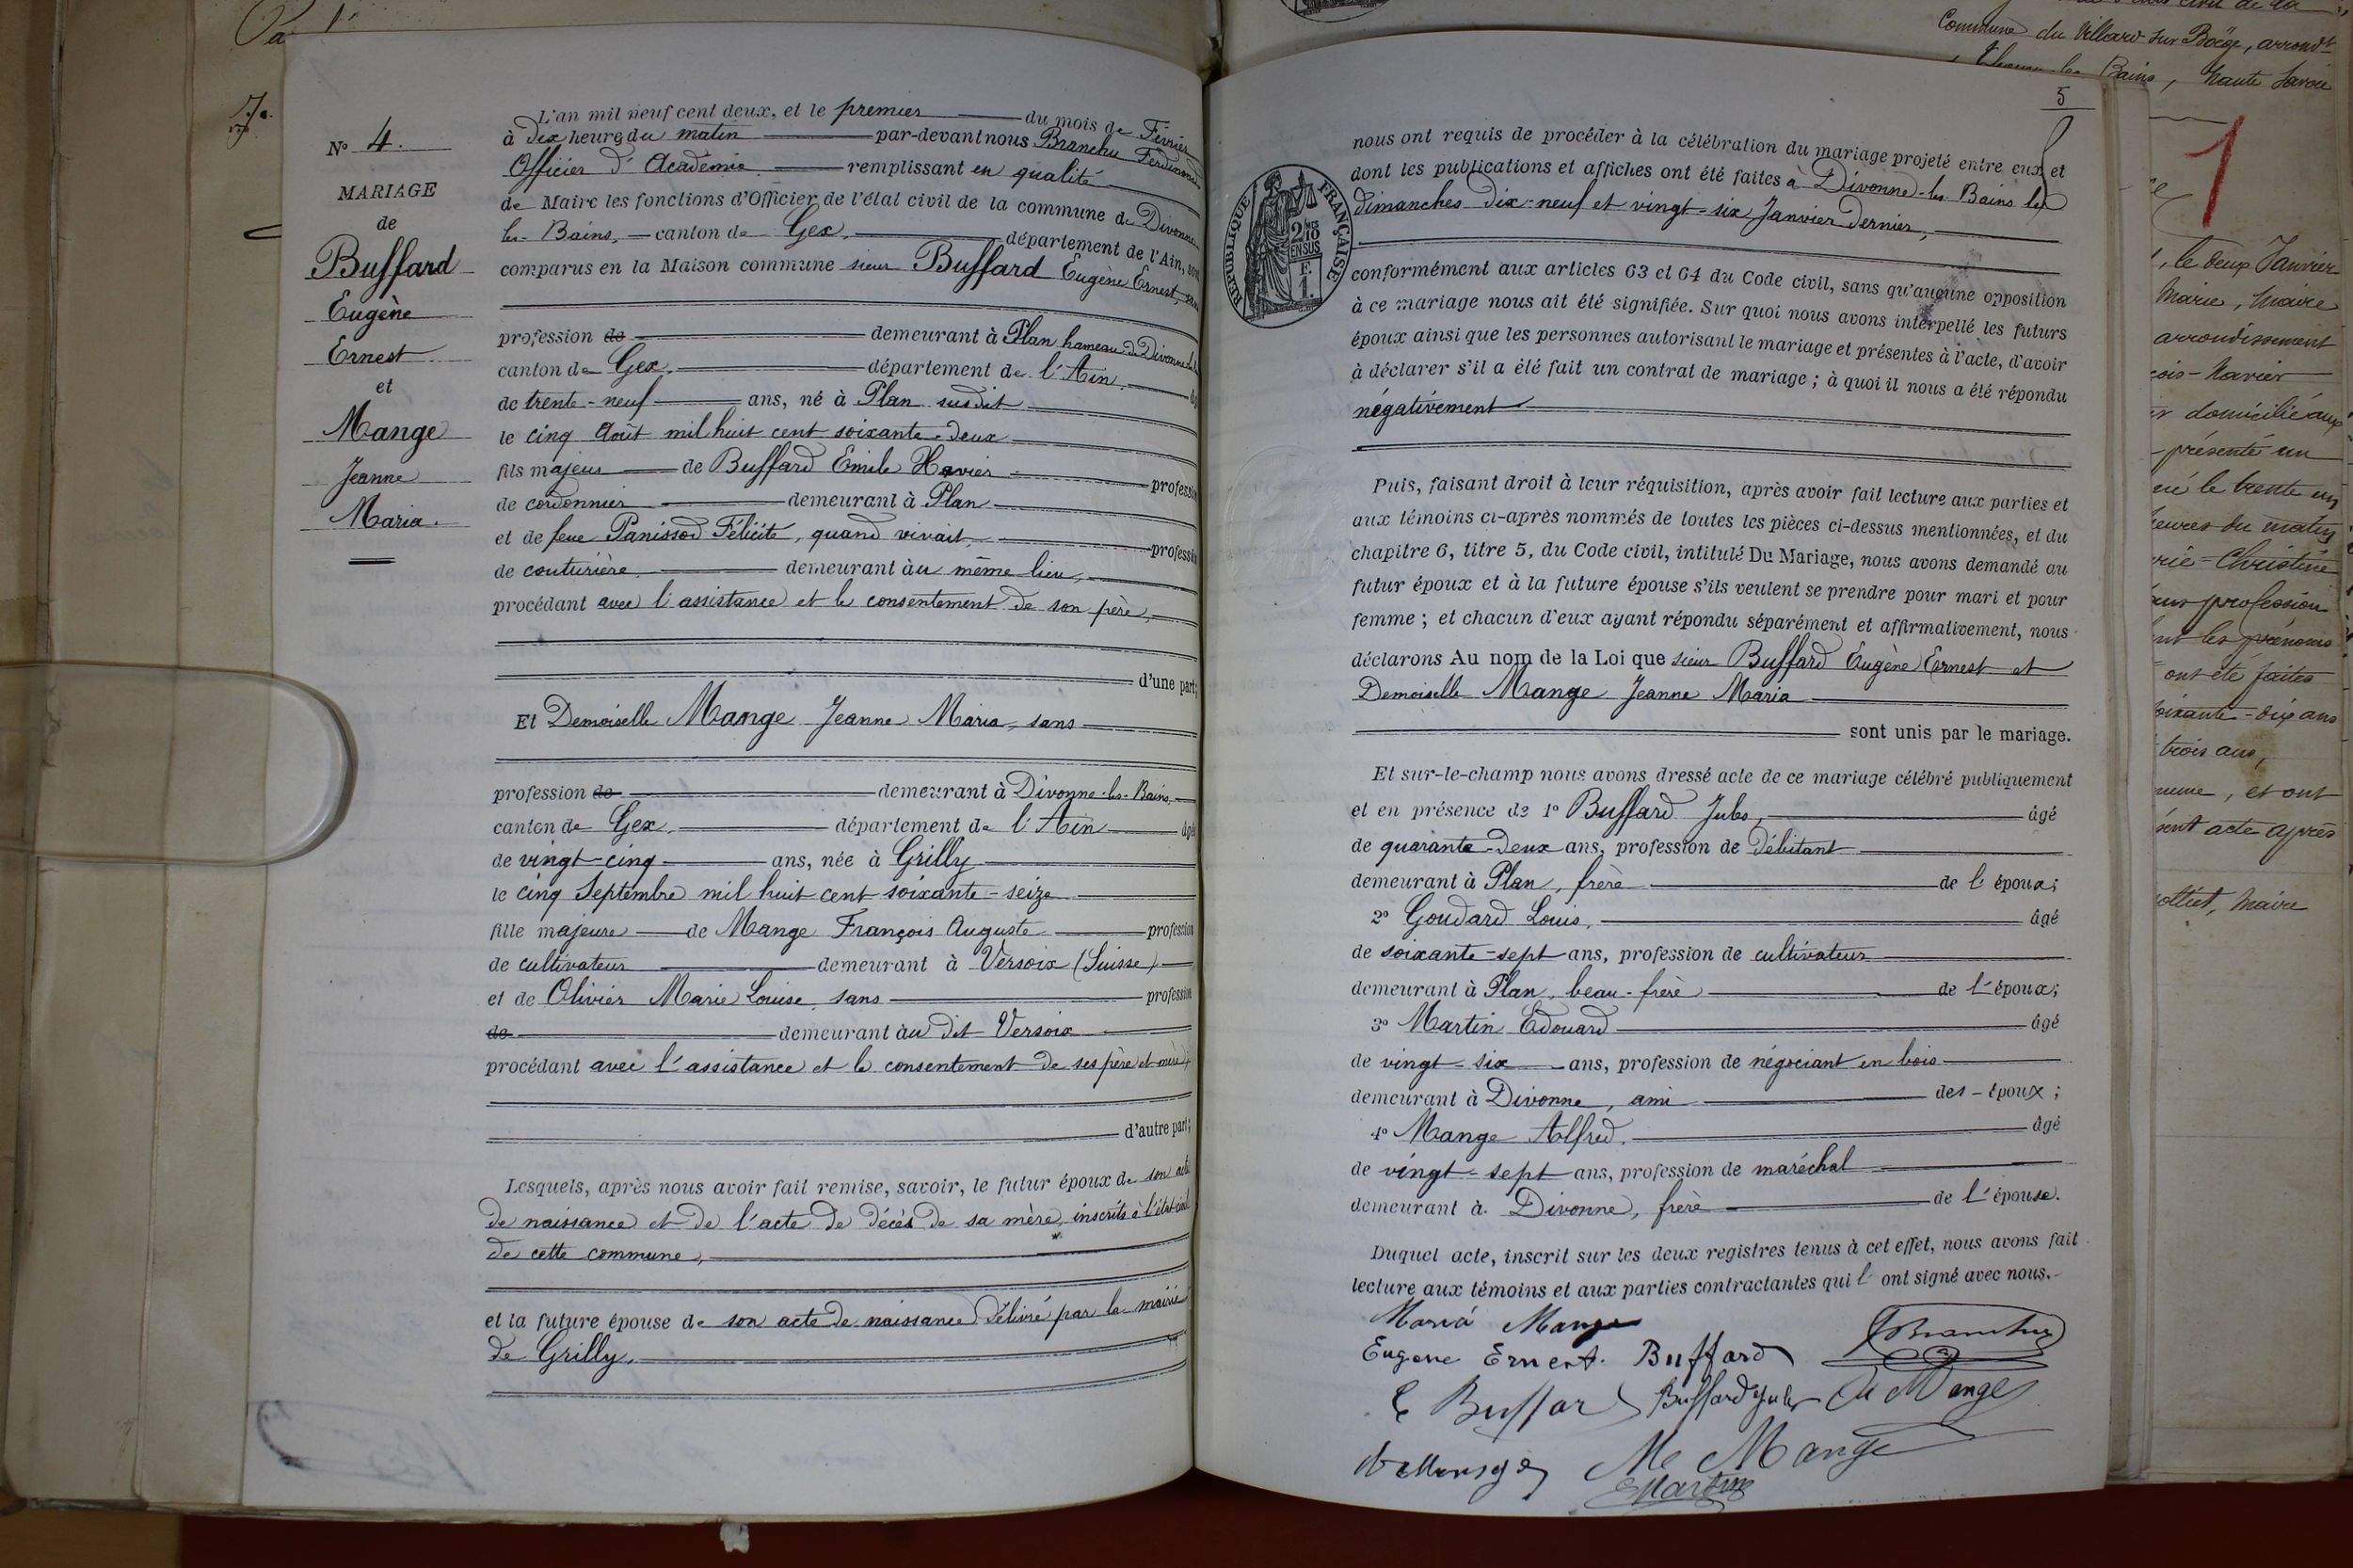 N° 4.
MARIAGE
de
Buffard
Eugène
Ernest
et
Mange
Jeanne
Maria.
L'an mil neuf cent deux, et le premier du mois de Février
à dix heures du matin par-devant nous Branchu Ferdinand
Officier d'Académie remplissant en qualité
de Maire les fonctions d'Officier de l'état civil de la commune de Divonne
les-Bains, canton de Gex, département de l'Ain, sont
comparus en la Maison commune sieur Buffard Eugène Ernest, sans
profession de demeurant à Plan hameau de Divonne
canton de Gex, département de l'Ain,
de trente-neuf ans, né à Plan susdit
le cinq Août mil huit cent soixante-deux
fils majeur de Buffard Emile Xavier profession
de cordonnier demeurant à Plan
et de feue Panissod Félicité, quand vivait, profession
de couturière demeurant au même lieu,
procédant avec l'assistance et le consentement de son père,
d'une part;
Et Demoiselle Mange Jeanne Maria, sans
profession de demeurant à Divonne-les-Bains,
canton de Gex, département de l'Ain âgée
de vingt-cinq ans, née à Grilly
le cinq Septembre mil huit cent soixante-seize
fille majeure de Mange François Auguste profession
de cultivateur demeurant à Versoix (Suisse)
et de Olivier Marie Louise, sans profession
de demeurant au dit Versoix
procédant avec l'assistance et le consentement de ses père et mère,
d'autre part;
Lesquels, après nous avoir fait remise, savoir, le futur époux de son acte
de naissance et de l'acte de décès de sa mère, inscrits à l'état-civil
de cette commune,
et la future épouse de son acte de naissance délivré par la mairie
de Grilly.
5
nous ont requis de procéder à la célébration du mariage projeté entre eux et
dont les publications et affiches ont été faites à Divonne-les-Bains les
dimanches dix-neuf et vingt-six Janvier dernier,
RÉPUBLIQUE FRANÇAISE
2/10
EN SUS
F.
1.
conformément aux articles 63 et 64 du Code civil, sans qu'aucune opposition
à ce mariage nous ait été signifiée. Sur quoi nous avons interpellé les futurs
époux ainsi que les personnes autorisant le mariage et présentes à l'acte, d'avoir
à déclarer s'il a été fait un contrat de mariage; à quoi il nous a été répondu
négativement
Puis, faisant droit à leur réquisition, après avoir fait lecture aux parties et
aux témoins ci-après nommés de toutes les pièces ci-dessus mentionnées, et du
chapitre 6, titre 5, du Code civil, intitulé Du Mariage, nous avons demandé au
futur époux et à la future épouse s'ils veulent se prendre pour mari et pour
femme; et chacun d'eux ayant répondu séparément et affirmativement, nous
déclarons Au nom de la Loi que sieur Buffard Eugène Ernest et
Demoiselle Mange Jeanne Maria
sont unis par le mariage.
Et sur-le-champ nous avons dressé acte de ce mariage célébré publiquement
et en présence de 1° Buffard Jules, âgé
de quarante-deux ans, profession de débitant
demeurant à Plan, frère de l'époux;
2° Goudard Louis, âgé
de soixante-sept ans, profession de cultivateur
demeurant à Plan, beau-frère de l'époux;
3° Martin Edouard âgé
de vingt-six ans, profession de négociant en bois
demeurant à Divonne, ami des époux;
4° Mange Alfred, âgé
de vingt-sept ans, profession de maréchal
demeurant à Divonne, frère de l'épouse.
Duquel acte, inscrit sur les deux registres tenus à cet effet, nous avons fait
lecture aux témoins et aux parties contractantes qui l'ont signé avec nous.
Maria Mange
Eugene Ernest Buffard Branchu
E Buffard Buffard Jules Mange
Me Mange
E Martin
Commune du Villard sur Boëge, arrondt
Bains, haute Savoie
1
le deux Janvier
Marie, Maire
arrondissement
domicilié aux
présenté un
né le trente un
heures du matin
Christine
profession
les prénoms
ont été faites
soixante-dix ans
trois ans,
, et ont
acte après
, Maire